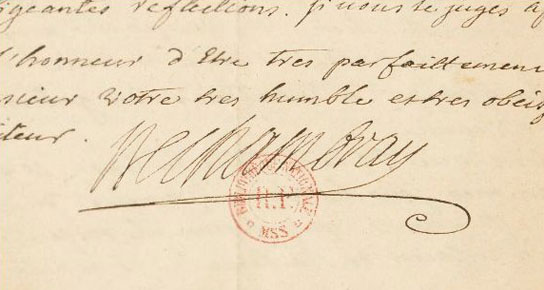 igeantes reflections. si vous le jugés
l'honneur d'Etre tres parfaittement
sieur Votre tres humble et tres obéis
iteur.
BIBLIOTHEQUE NATIONALE
R.F.
MSS